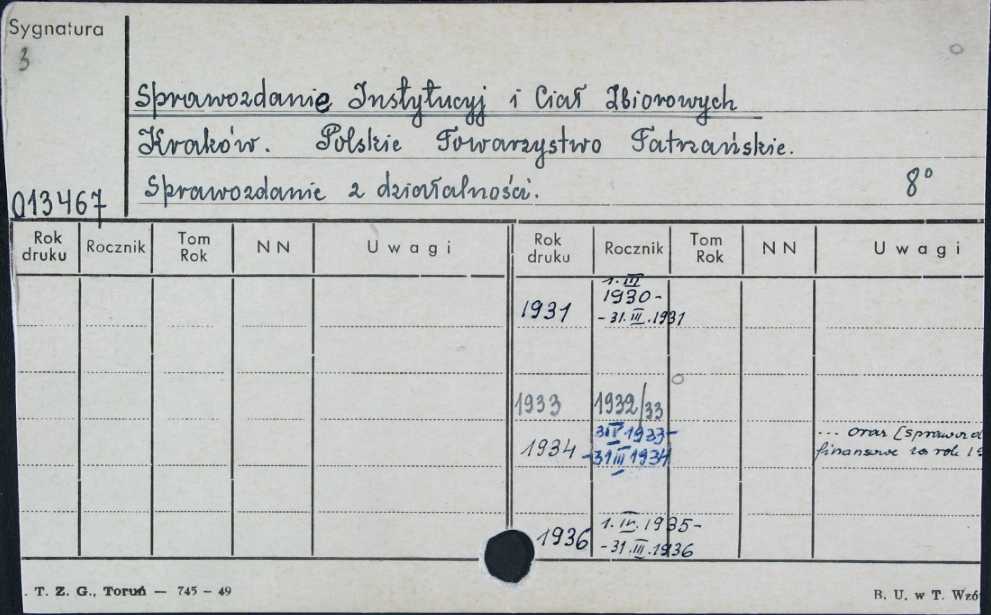 Sygnatura
3
Sprawozdanie Instytucyj i Ciał Zbiorowych
Kraków. Polskie Towarzystwo Tatrzańskie.
Sprawozdanie z działalności. 8°
013467
Rok druku Rocznik Tom Rok NN Uwagi Rok druku Rocznik Tom Rok NN Uwagi
1931 1.III 1930-
-31.III.1931
1933 1932/33
1934 1933-
-31 III 1934
... oraz [sprawozd
finansowe za rok 19
1936 1.IV.1935-
-31.III.1936
. T. Z. G., Toruń — 745 – 49
B. U. w T. Wzó